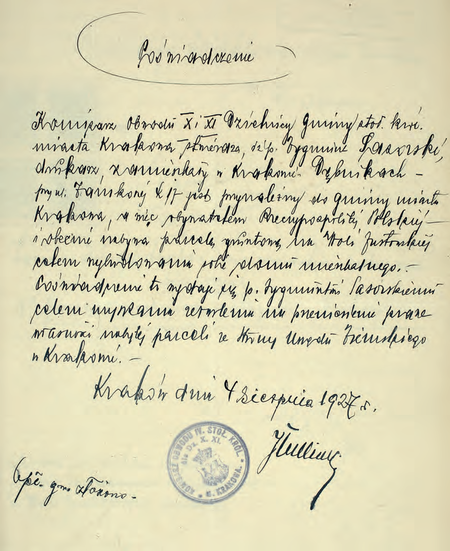 Poświadczenie
Komisarz Obwodu X i XI Dzielnicy Gminy stoł. król.
miasta Krakowa stwierdza, że p. Zygmunt
drukarz, zamieszkały w Krakowie Dębnikach
przy ul. Zamkowej L 17 jest przynależny do gminy miasta
Krakowa, a więc obywatelem Rzeczypospolitej Polskiej
i obecnie nabywa parcelę gruntową na Woli Justowskiej
celem wybudowania sobie domu mieszkalnego.-
Poświadczenie to wydaje się p. Zygmuntowi
celem uzyskania zezwolenia na przeniesienie prawa
własności nabytej parceli ze strony Urzędu Ziemskiego
w Krakowie.-
Kraków dnia 4 sierpnia 1927 r.
KOMISARZ OBWODU IV. STOŁ. KRÓL.
dla Dz. X. XI.
M. KRAKOWA